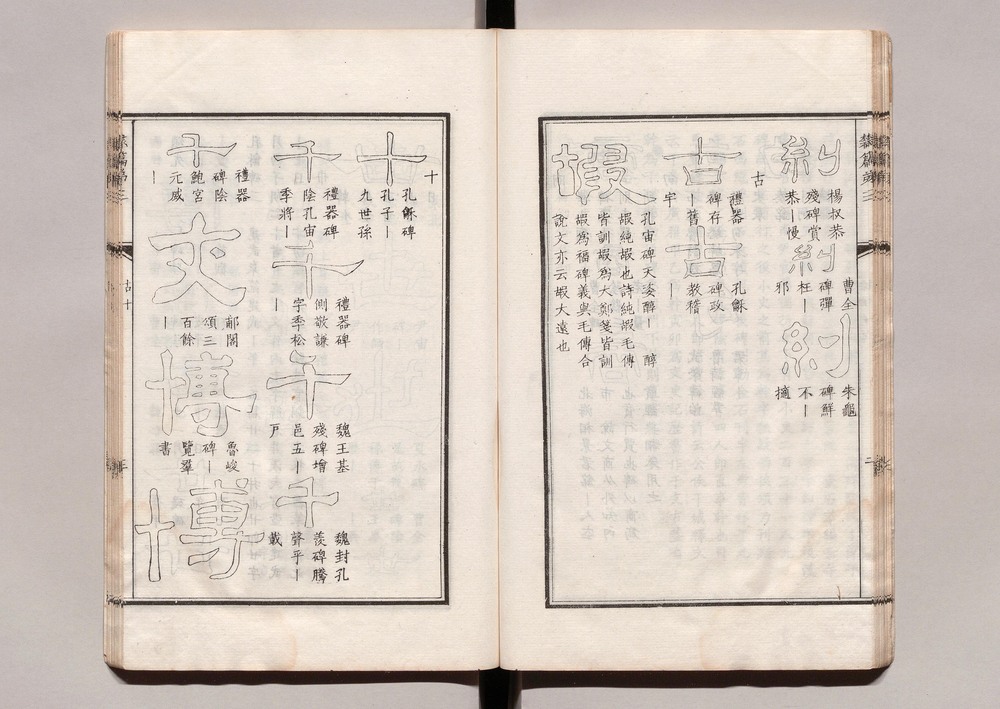 糾
楊叔恭
殘碑賞
恭｜慢
糾
曹全
碑彈
枉｜
邪
糾
朱龜
碑鮮
不｜
擿
古
古
禮器
碑存
｜舊
宇
古
孔龢
碑政
教稽
｜
嘏
孔宙碑天姿醇｜醇
嘏純嘏也詩純嘏毛傳
皆訓嘏爲大鄭箋皆訓
嘏爲福碑義與毛傳合
說文亦云嘏大遠也
十
十
孔龢碑
孔子｜
九世孫
千
禮器碑
陰孔宙
季將｜
千
禮器碑
側敬謙
字季松
｜
千
魏王基
殘碑增
邑五｜
戶
千
魏封孔
羨碑騰
聲乎｜
載
千
禮器
碑陰
鮑宮
元威
｜
夾
郙閣
頌三
百餘
｜
博
魯峻
碑｜
覽羣
書
博
古十
二